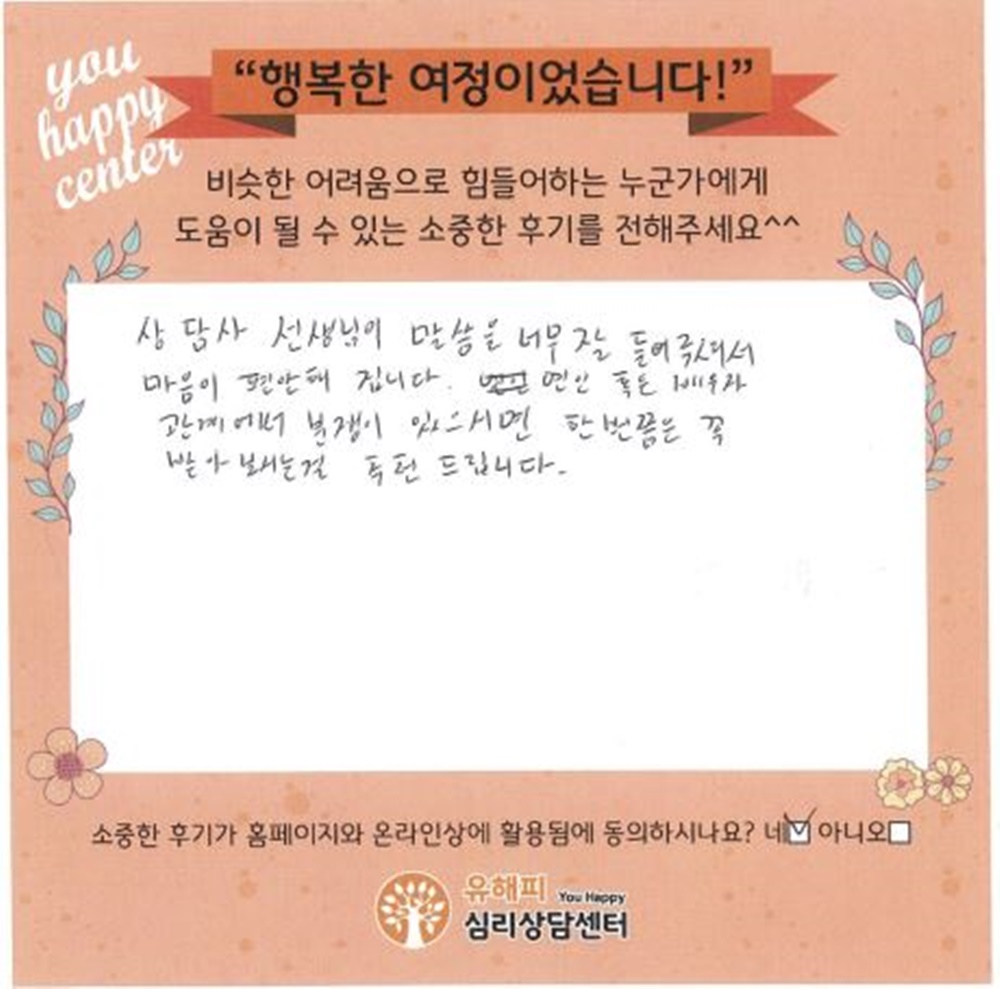 you
happy
center
“행복한 여정이었습니다!”
비슷한 어려움으로 힘들어하는 누군가에게
도움이 될 수 있는 소중한 후기를 전해주세요^^
상담사 선생님이 말씀을 너무 잘 들어주셔서
마음이 편안해 집니다. 연인 혹은 배우자
관계에서 분쟁이 있으시면 한번쯤은 꼭
받아 보시는걸 추천 드립니다.
소중한 후기가 홈페이지와 온라인상에 활용됨에 동의하시나요? 네☑ 아니오☐
유해피 You Happy
심리상담센터